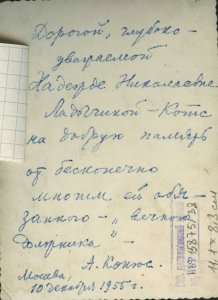 Дорогой, глубоко-
уважаемой
Надежде Николаевне
Ладыгиной-Котс
на добрую память
от бесконечно
многим ей обя-
занного - „вечного
должника" -
А. Конюс.
Москва,
10 декабря 1955 г.